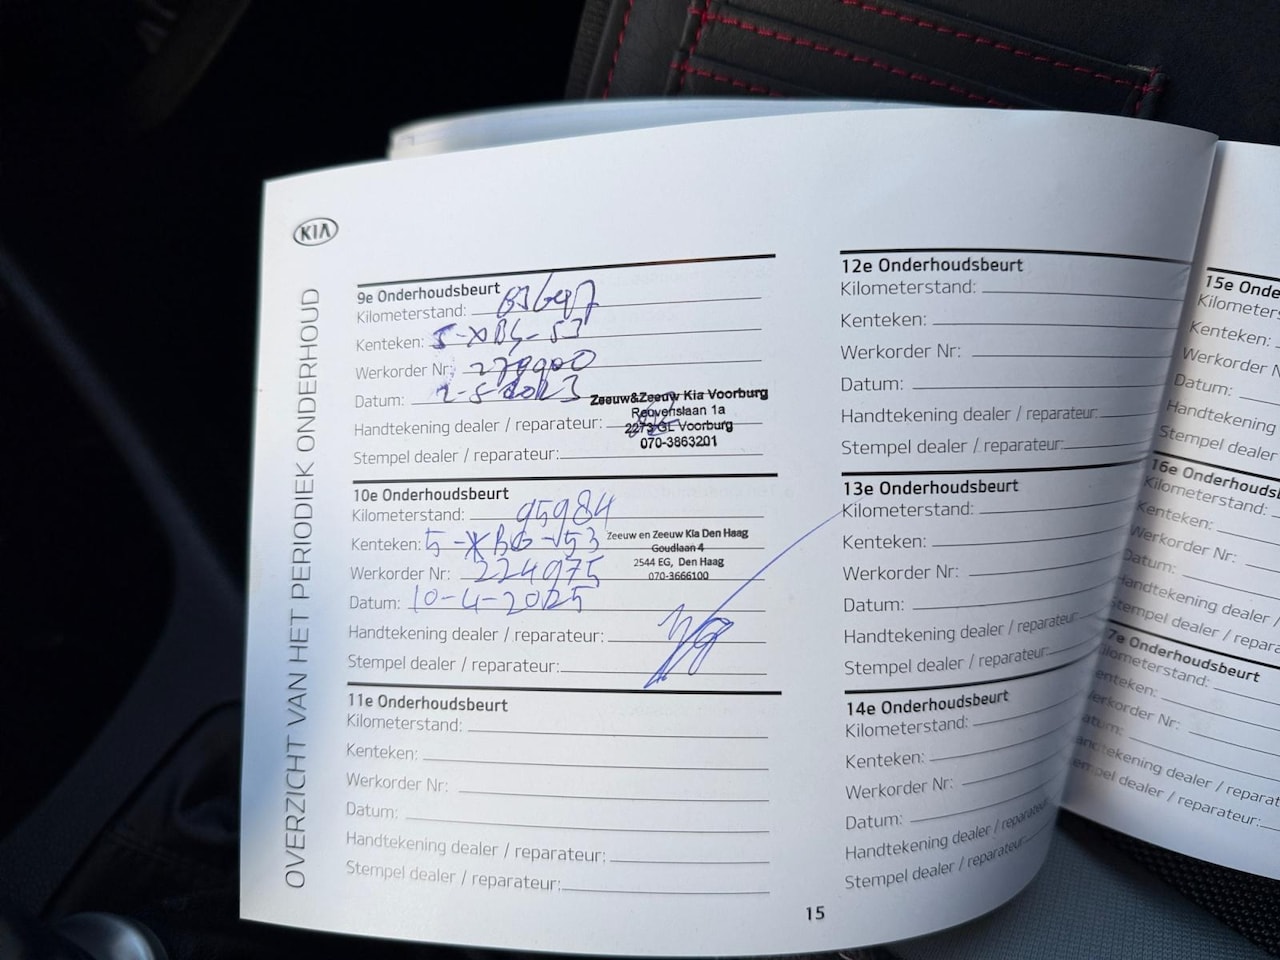 KIA
OVERZICHT VAN HET PERIODIEK ONDERHOUD
9e Onderhoudsbeurt
Kilometerstand:
Kenteken: 5-XBG-53
Werkorder Nr:
Datum: 2-5-2023
Handtekening dealer / reparateur:
Stempel dealer / reparateur:
Zeeuw&Zeeuw Kia Voorburg
Reuvenslaan 1a
2273 GL Voorburg
070-3863201
10e Onderhoudsbeurt
Kilometerstand: 95984
Kenteken: 5-XBG-53
Werkorder Nr: 224975
Datum: 10-4-2025
Handtekening dealer / reparateur:
Stempel dealer / reparateur:
Zeeuw en Zeeuw Kia Den Haag
Goudlaan 4
2544 EG, Den Haag
070-3666100
11e Onderhoudsbeurt
Kilometerstand:
Kenteken:
Werkorder Nr:
Datum:
Handtekening dealer / reparateur:
Stempel dealer / reparateur:
12e Onderhoudsbeurt
Kilometerstand:
Kenteken:
Werkorder Nr:
Datum:
Handtekening dealer / reparateur:
Stempel dealer / reparateur:
13e Onderhoudsbeurt
Kilometerstand:
Kenteken:
Werkorder Nr:
Datum:
Handtekening dealer / reparateur:
Stempel dealer / reparateur:
14e Onderhoudsbeurt
Kilometerstand:
Kenteken:
Werkorder Nr:
Datum:
Handtekening dealer / reparateur:
Stempel dealer / reparateur:
15
15e Onde
Kilometerstan
Kenteken:
Werkorder N
Datum:
Handtekening
Stempel dealer
16e Onderhouds
Kilometerstand:
Kenteken:
Werkorder Nr:
Datum:
Handtekening dealer
Stempel dealer / repara
7e Onderhoudsbeurt
ilometerstand:
enteken:
erkorder Nr:
atum:
andtekening dealer / reparat
empel dealer / reparateur: